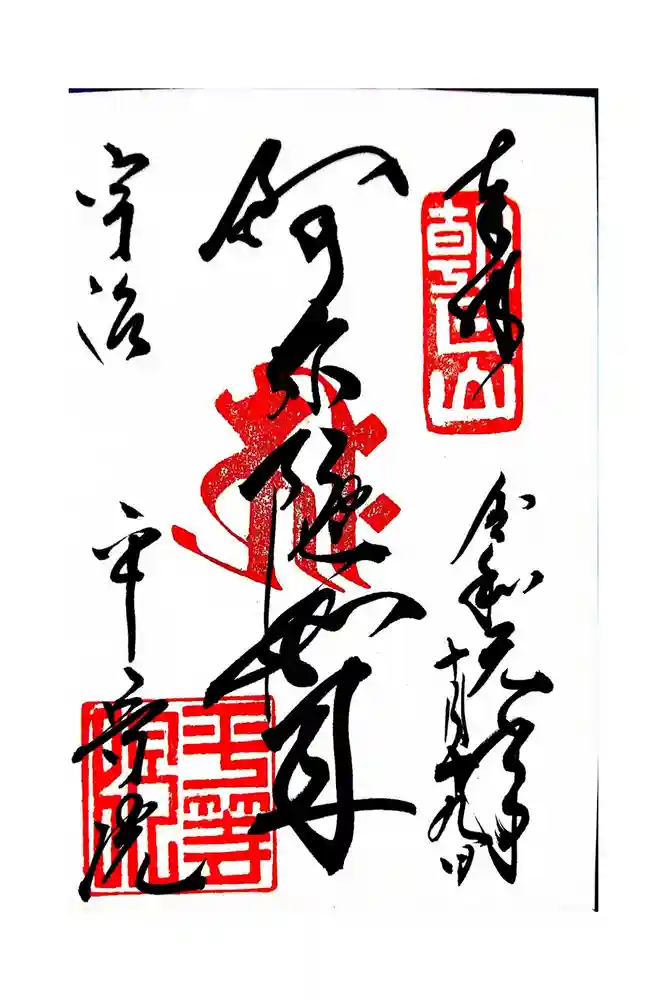 奉拝
朝日山
令和元年
十月十九日
阿弥陀如来
宇治
平等院
平等院